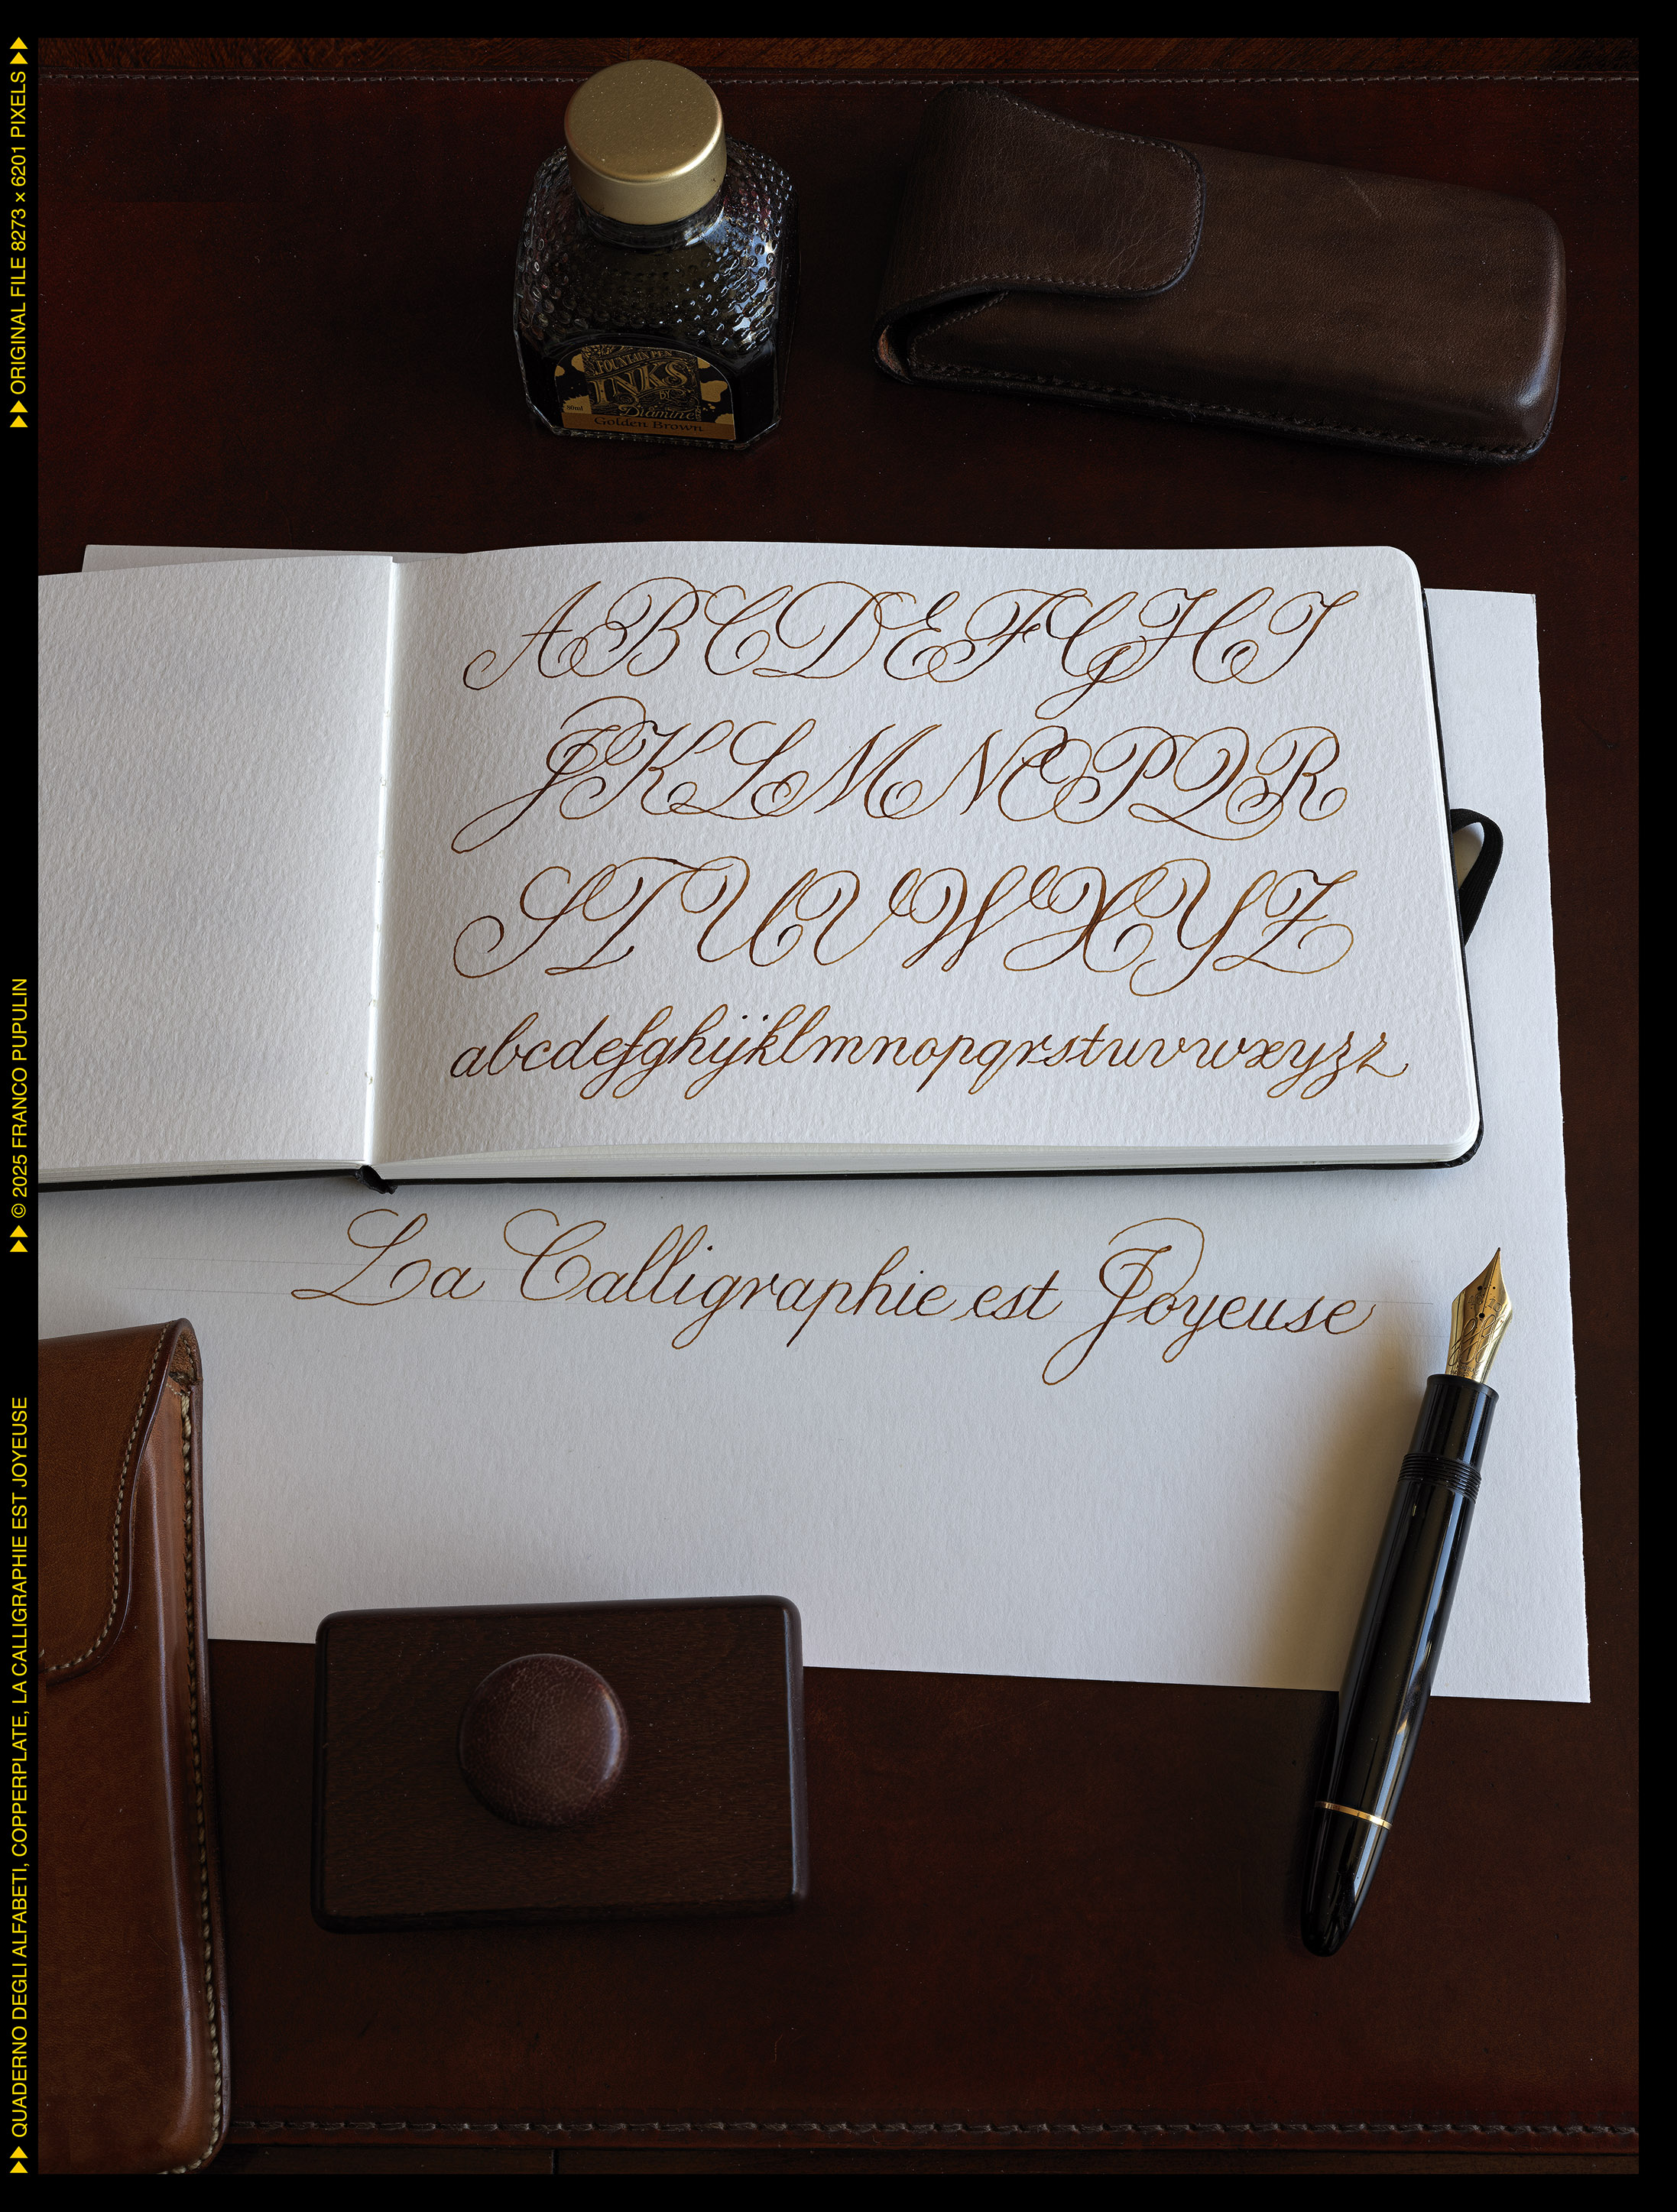 FOUNTAIN PEN
INKS
BY
Diamine
30ml
Golden Brown
ABCDEFGHI
JKLMNOPQR
STUVWXYZ
abcdefghijklmnopqrstuvwxyzz
La Calligraphie est Joyeuse
ORIGINAL FILE 8273 × 6201 PIXELS
© 2025 FRANCO PUPULIN
QUADERNO DEGLI ALFABETI, COPPERPLATE, LA CALLIGRAPHIE EST JOYEUSE